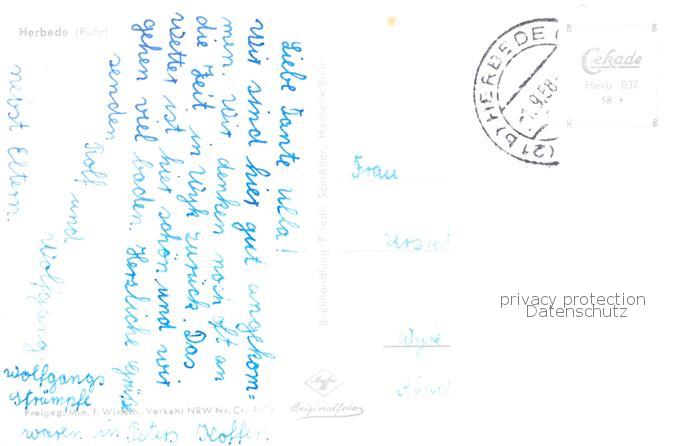 Herbede (Ruhr)
Liebe Tante Ulla!
Wir sind hier gut angekom=
men. Wir denken noch oft an
die Zeit in Wyk zurück. Das
Wetter ist hier schön und wir
gehen viel baden. Herzliche Grüße
senden
Rolf und
Wolfgang
nebst Eltern.
Wolfgangs
Strümpfe
waren in Peters Koffer.
Freigeg. Min. f. Wirtsch. Verkehr NRW Nr. Cr.
Buchhandlung Friedr. Schröder, Herbede/Ruhr
Agfa
Originalfoto
(21b) HERBEDE (
9.58-
Cekade
Herb 037
58 k
Frau
Ursul
Wyk
privacy protection
Datenschutz